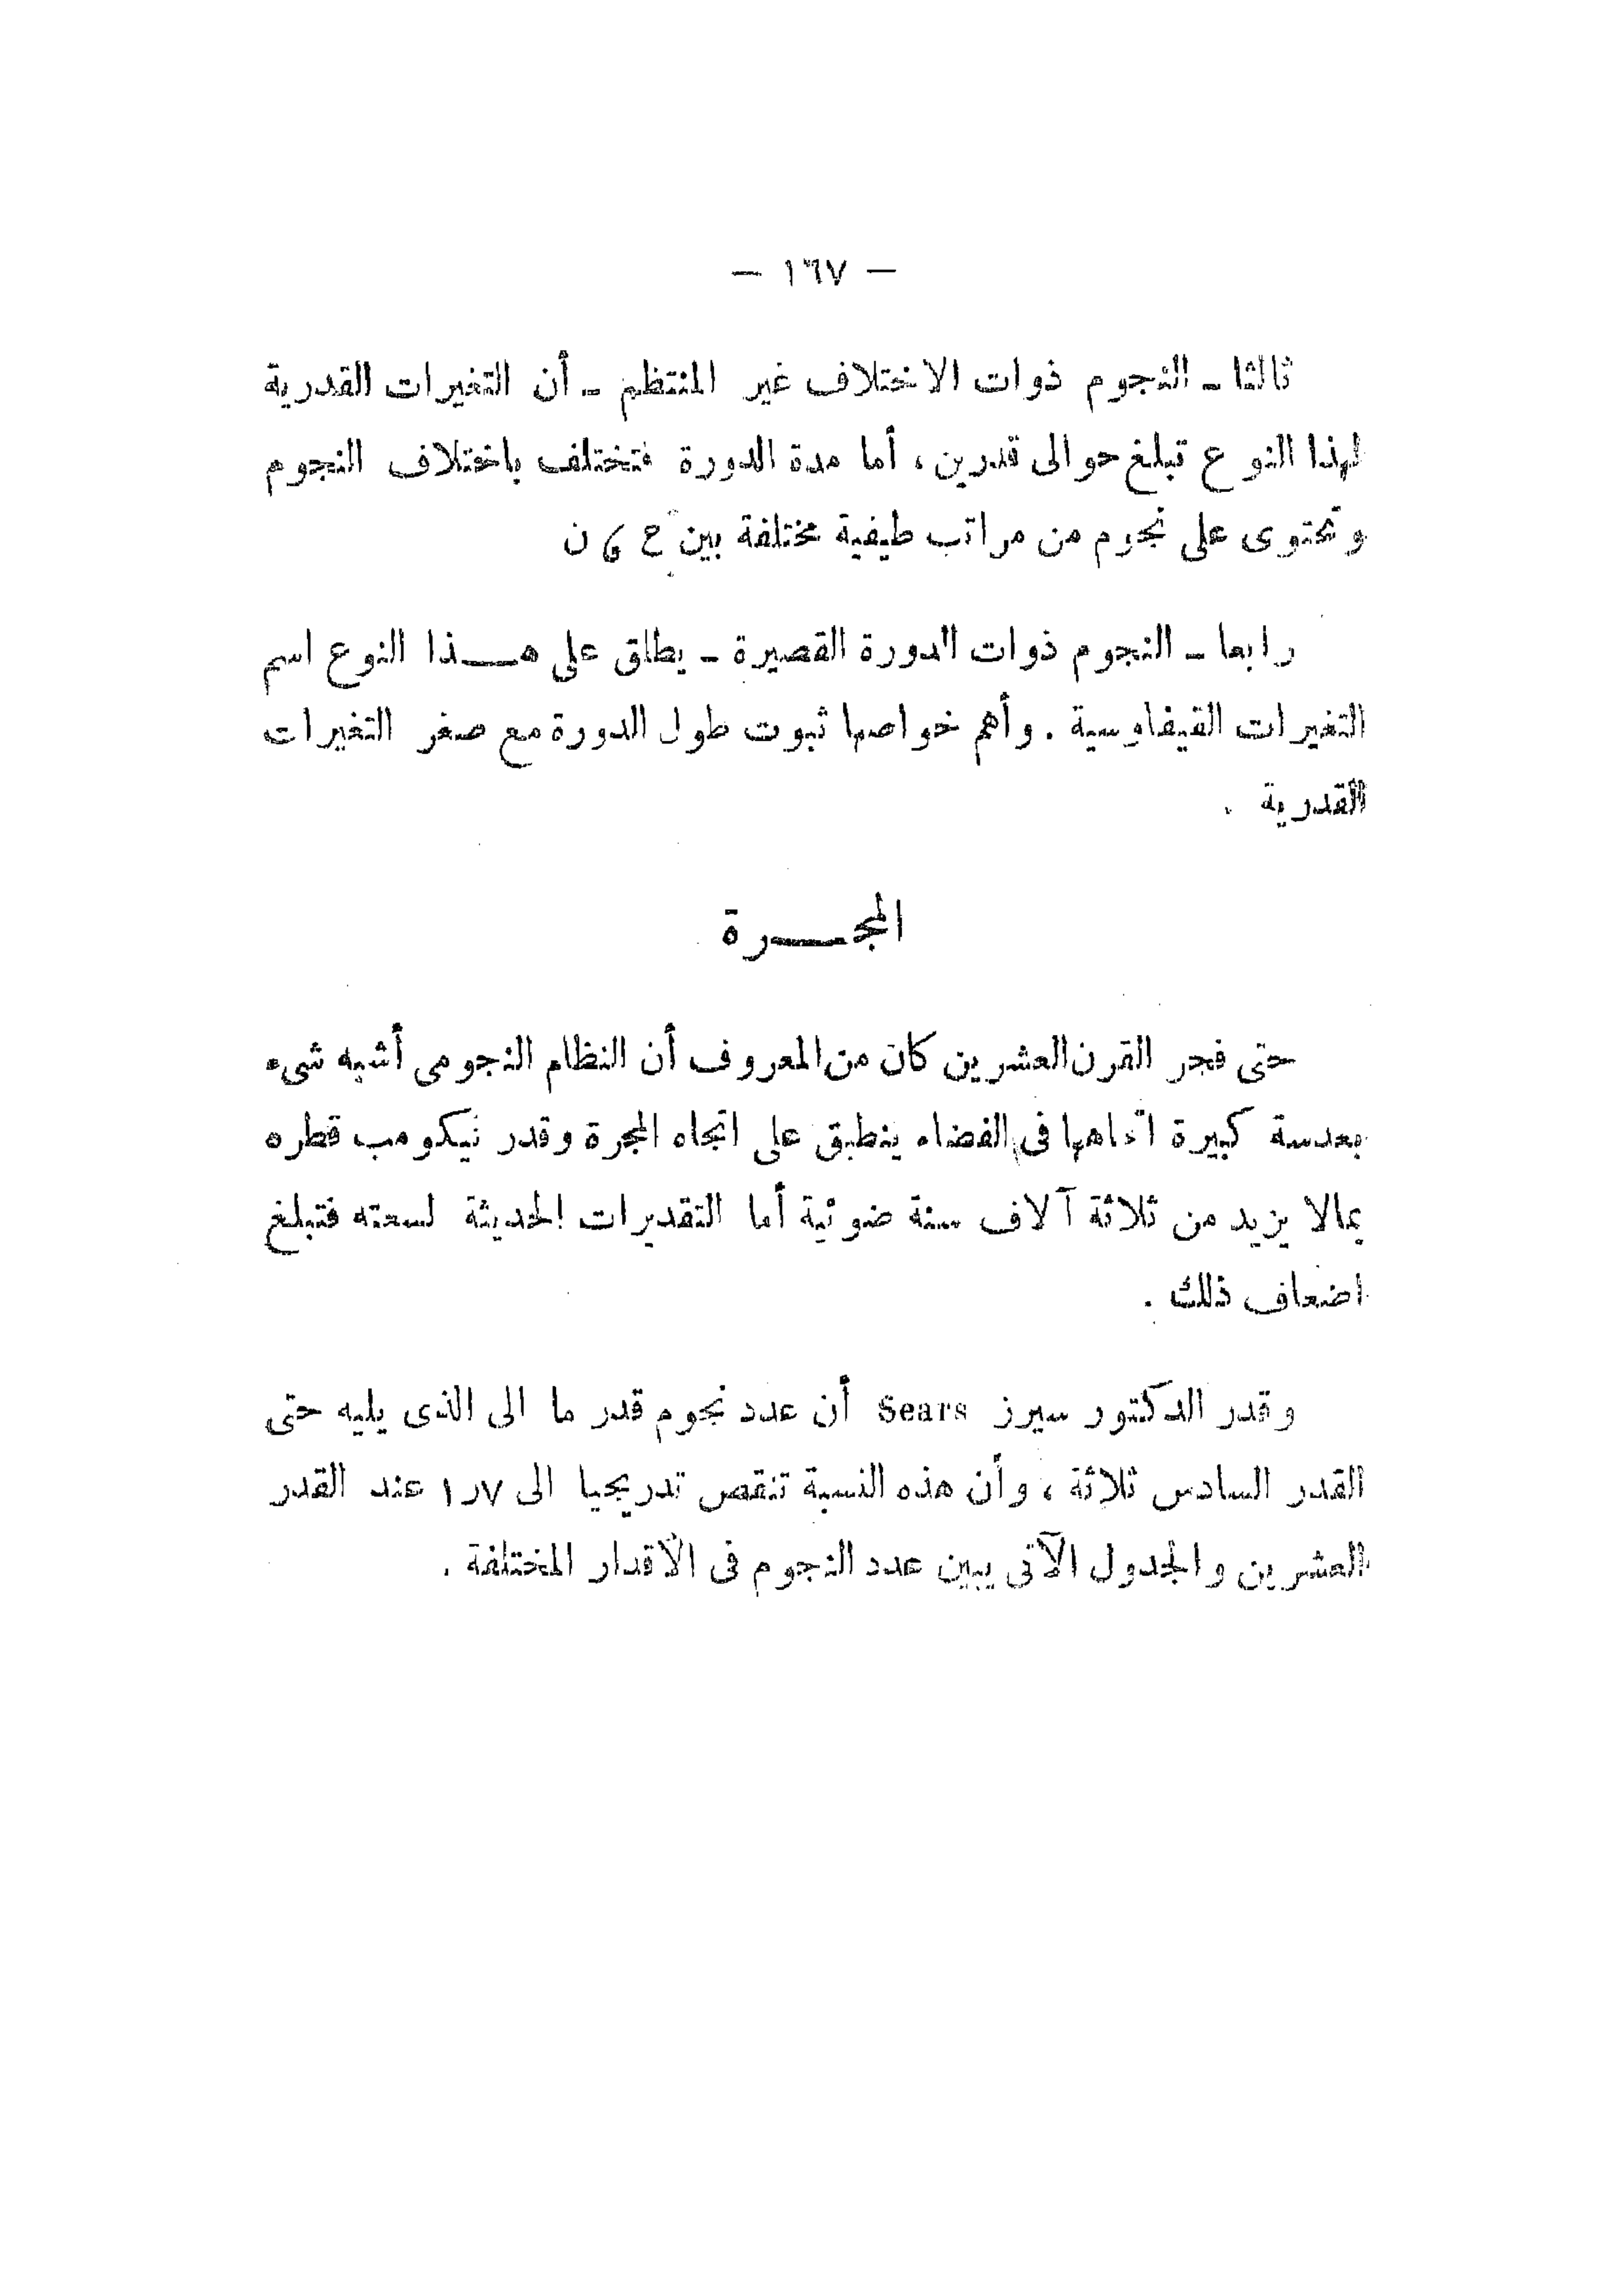 — ١٦٧ —
ثالثا ـ النجوم ذوات الاختلاف غير المنتظم ـ أن التغيرات القدرية
لهذا النوع تبلغ حوالى قدرين ، أما مدة الدورة فتختلف باختلاف النجوم
وتحتوى على نجوم من مراتب طيفية مختلفة بين ح ، ن
رابعا ـ النجوم ذوات الدورة القصيرة ـ يطلق على هـــذا النوع اسم
التغيرات القيفاوسية . وأهم خواصها ثبوت طول الدورة مع صغر التغيرات
القدرية .
المجـــرة
حتى فجر القرن العشرين كان من المعروف أن النظام النجومى أشبه شىء
بعدسة كبيرة اتجاهها فى الفضاء ينطبق على اتجاه المجرة وقدر نيكومب قطره
بمالا يزيد من ثلاثة آلاف سنة ضوئية أما التقديرات الحديثة لسعته فتبلغ
اضعاف ذلك .
وقدر الدكتور سيرز Sears أن عدد نجوم قدر ما الى الذى يليه حتى
القدر السادس ثلاثة ، وأن هذه النسبة تنقص تدريجيا الى ١٫٧ عند القدر
العشرين والجدول الآتى يبين عدد النجوم فى الأقدار المختلفة .